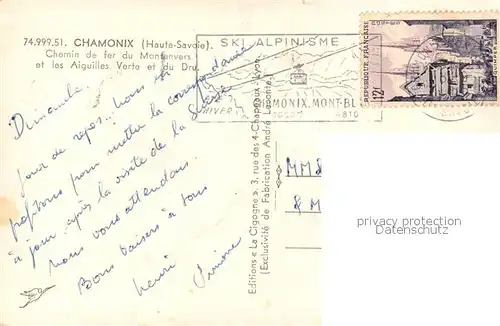 74.999.51. CHAMONIX (Haute-Savoie).
Chemin de fer du Montenvers
et les Aiguilles Verte et du Dru.
Dimanche
jour de repos... nous en
profitons pour mettre la correspondance
à jour après la visite de la
Nous vous attendons.
Bons baisers à tous
Henri Simone
Editions « La Cigogne », 3, rue des 4-Chapeaux, Lyon.
(Exclusivité de Fabrication André Leconte).
SKI ALPINISME
HIVER
CHAMONIX, MONT-BL
4810
REPUBLIQUE FRANÇAISE
POSTES
12F
MM
& M
privacy protection
Datenschutz